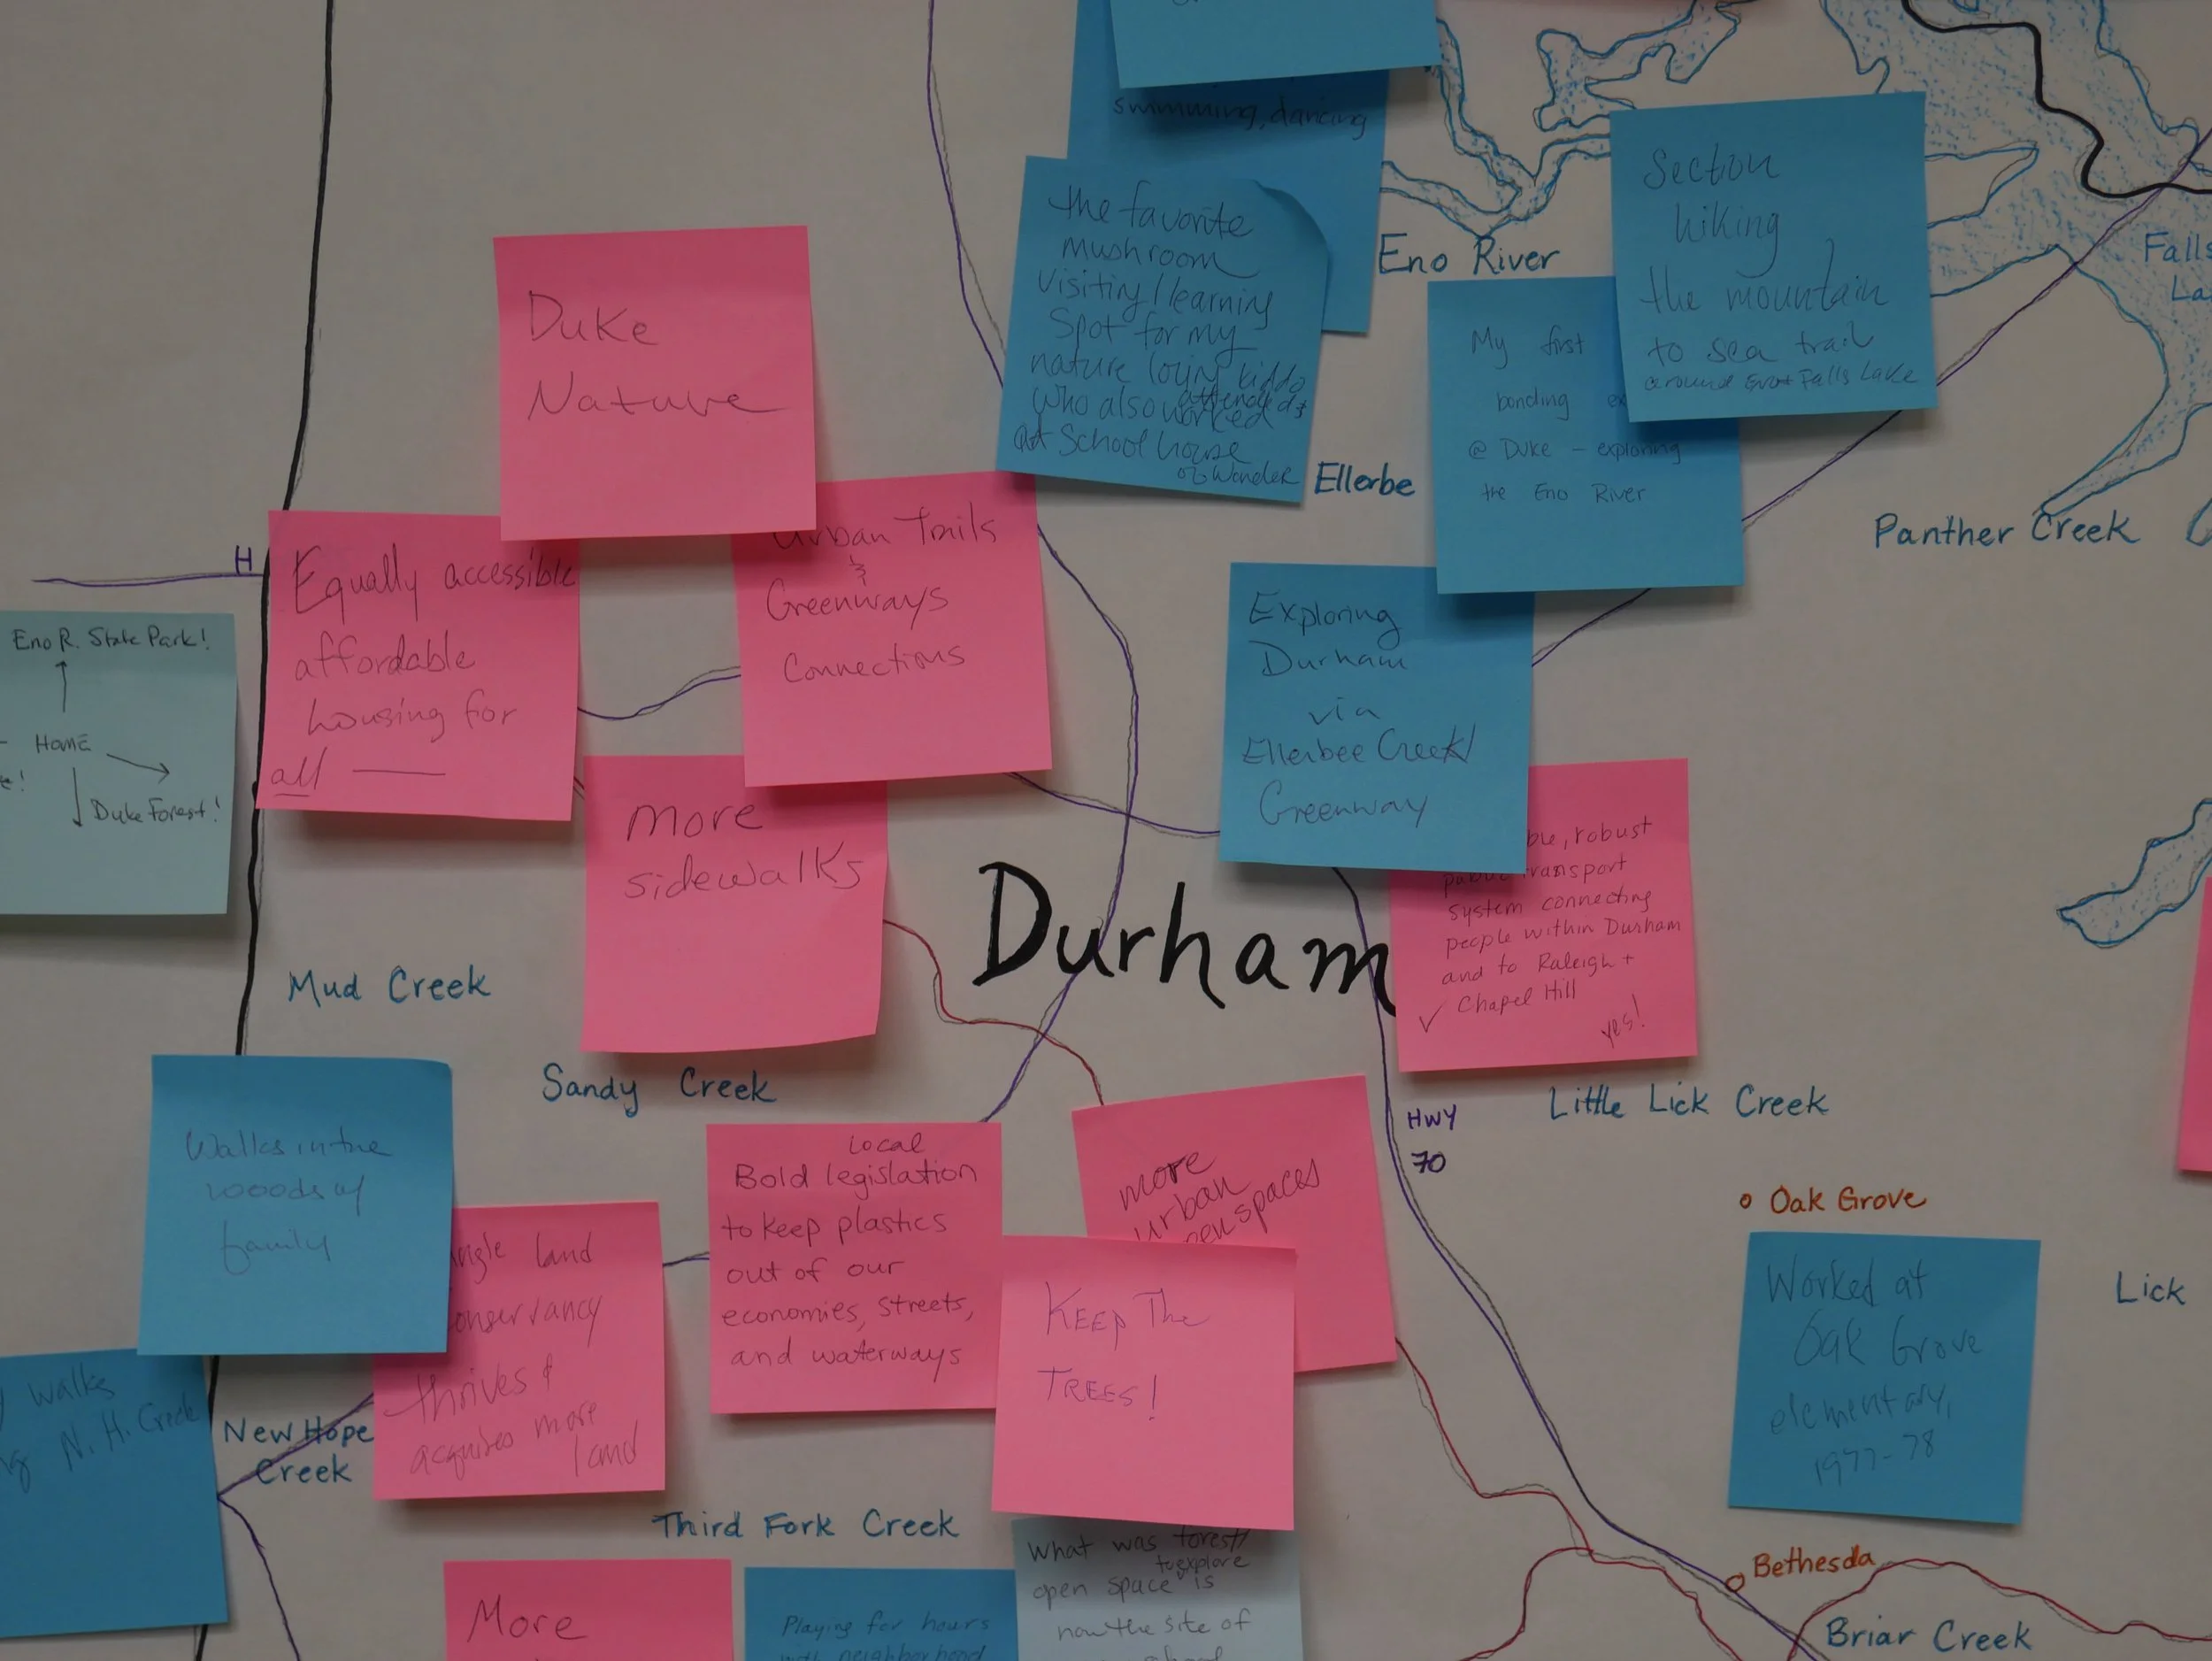 swimming, dancing
the favorite
mushroom
visiting/learning
spot for my
nature loving kiddo
who also attended &
worked
at School house
of Wonder
Eno River
Section
hiking
the mountain
to sea trail
around Eno+Falls Lake
Falls
La
My first
bonding
@ Duke - exploring
the Eno River
Ellerbe
Panther Creek
Duke
Nature
Urban Trails
&
Greenways
Connections
H
Equally accessible
affordable
housing for
all —
Eno R. State Park!
Home
Duke Forest!
More
sidewalks
Exploring
Durham
via
Ellerbee Creek
Greenway
robust
public transport
system connecting
people within Durham
and to Raleigh +
✓ Chapel Hill
yes!
Durham
Mud Creek
Sandy Creek
Little Lick Creek
Hwy
70
Oak Grove
Worked at
Oak Grove
elementary,
1977-78
Lick
Walks in the
woods w/
family
land
conservancy
thrives &
acquires more
land
Local
Bold legislation
to keep plastics
out of our
economies, streets,
and waterways
more
urban
open spaces
Keep The
Trees!
walks
N. H. Creek
New Hope
Creek
Third Fork Creek
More
Playing for hours
with neighborhood
What was forest/
to explore
open space is
now the site of
Bethesda
Briar Creek